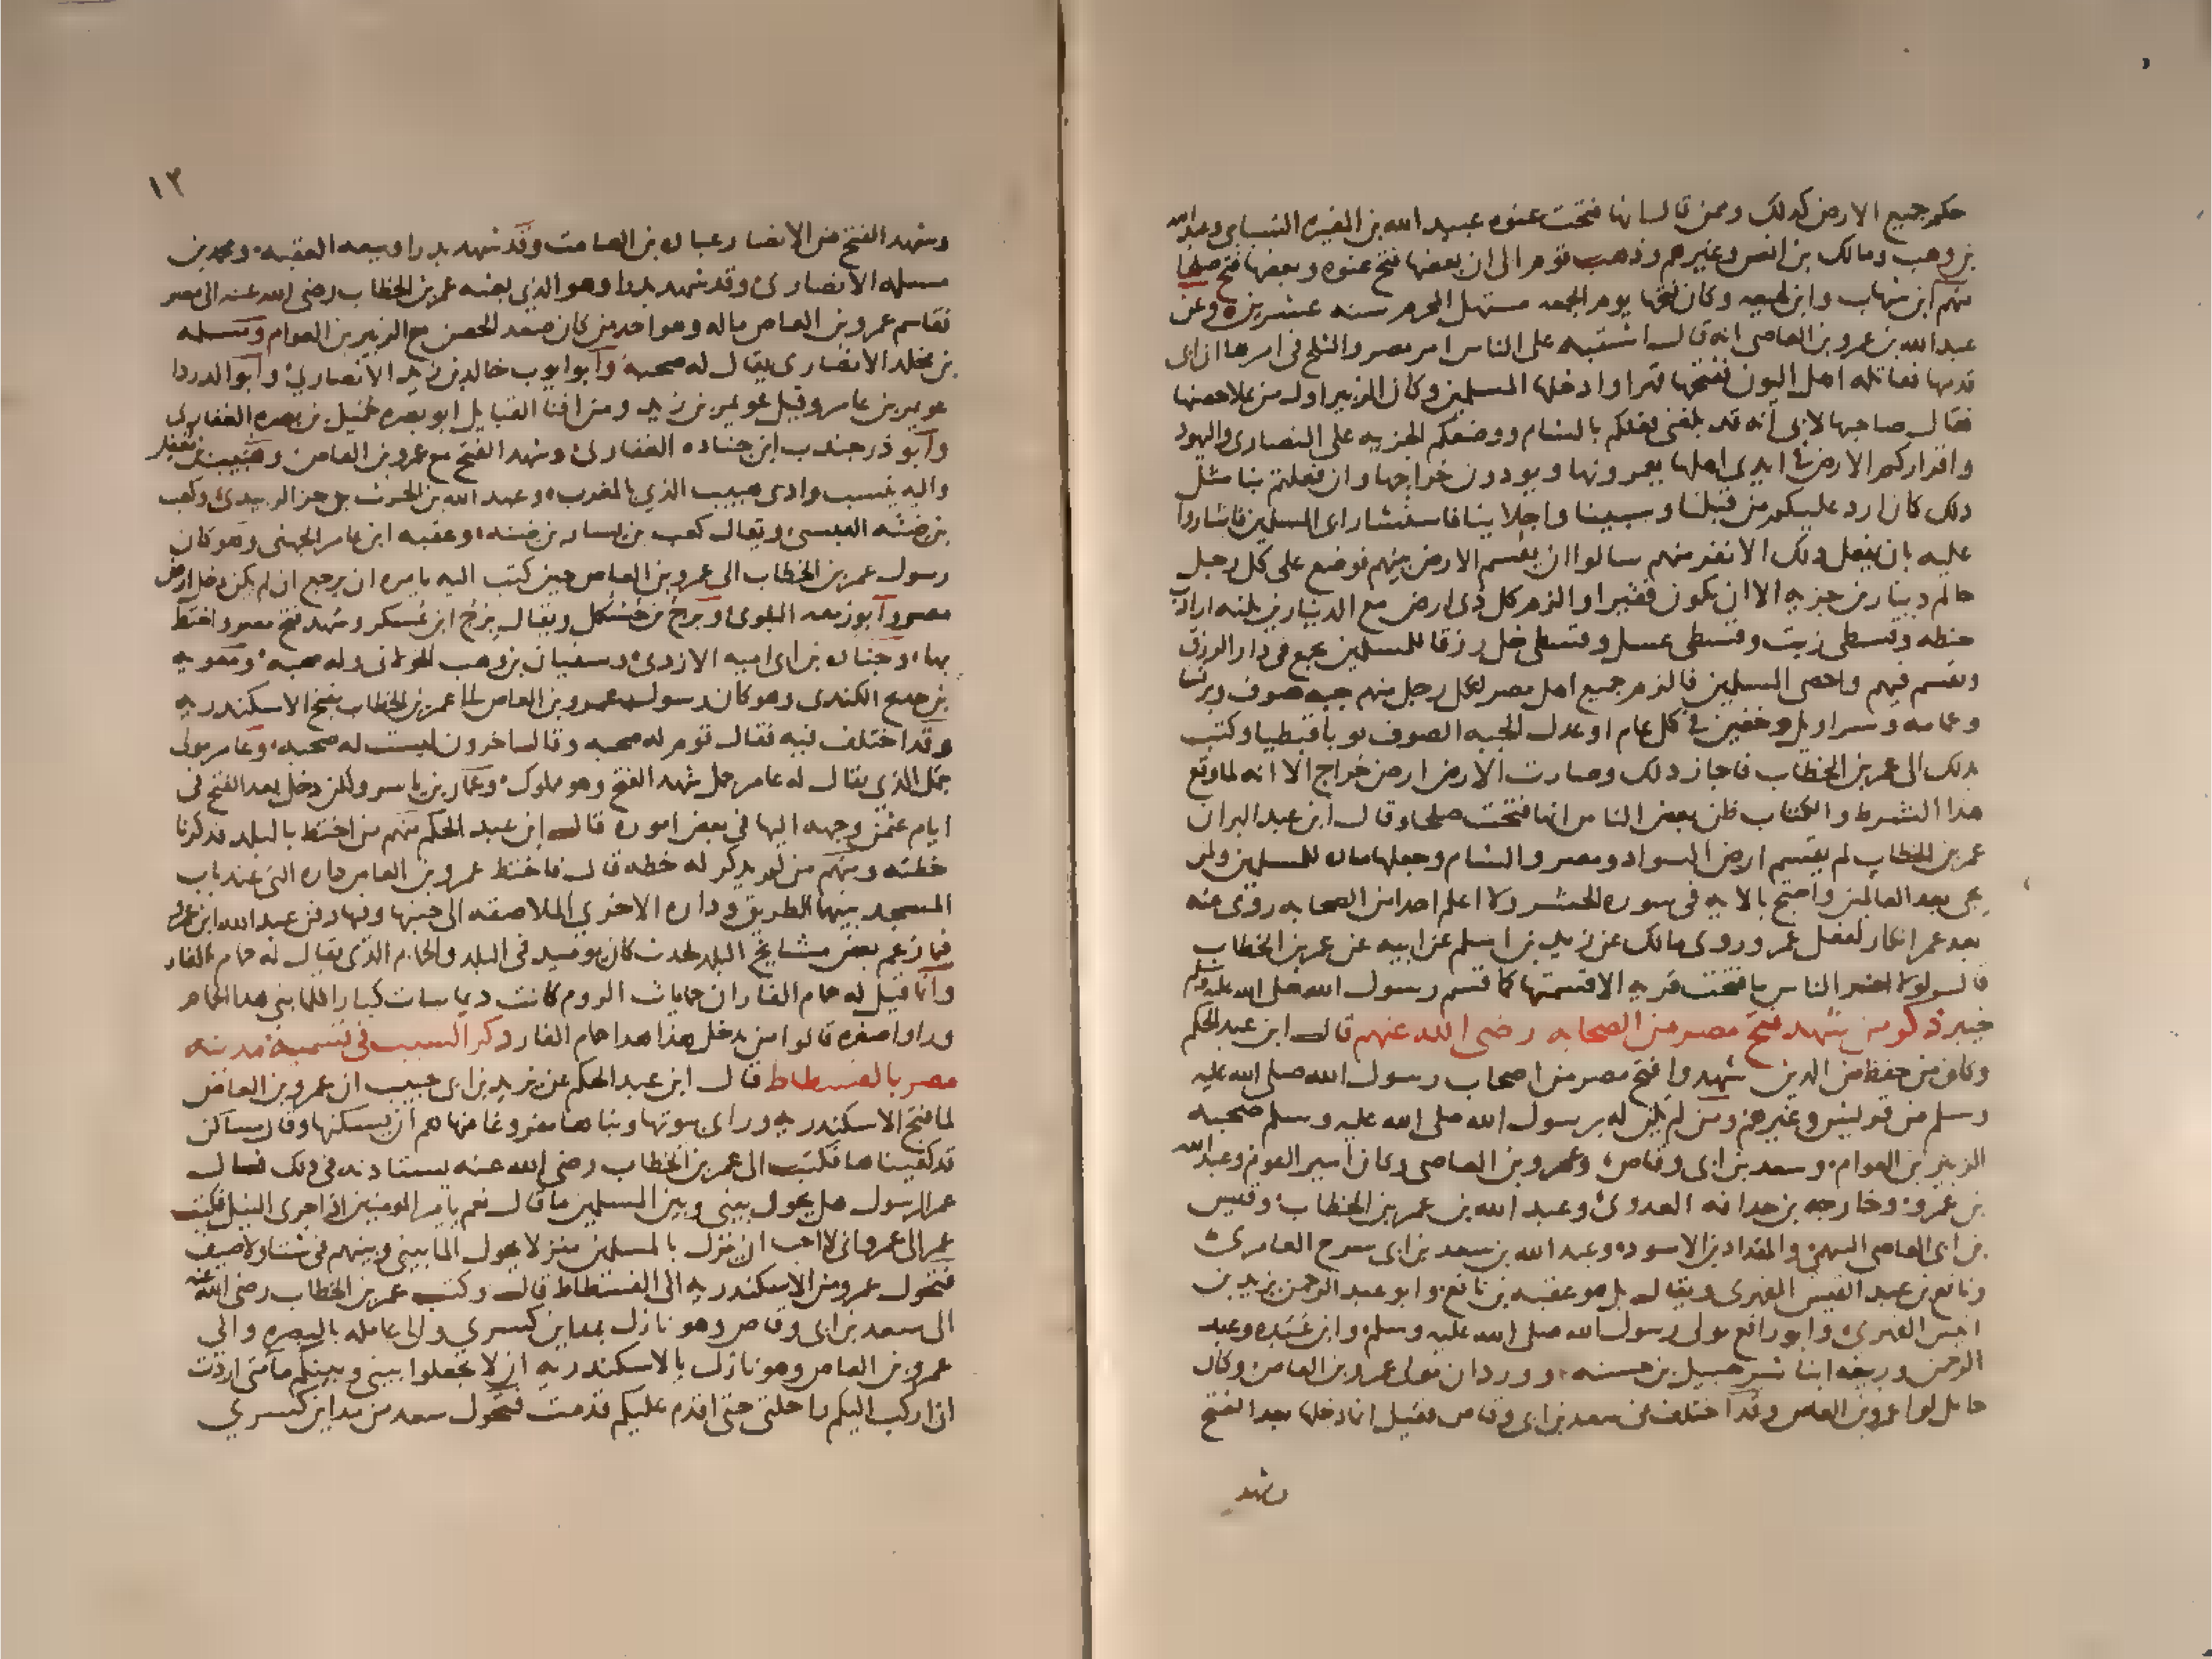 حكم جميع الارض كذلك وممن قال انها فتحت عنوه عبيد الله بن المغيره السباى وعبد الله
بن وهب ومالك بن انس وغيرهم وذهب قوم الى ان بعضها فتح عنوه وبعضها فتح صلحا
منهم ابن شهاب وابن لهيعه وكان فتحها يوم الجمعه مستهل المحرم سنه عشرين وعن
عبد الله بن عمرو بن العاصى انه قال اشتبه على الناس امر مصر والثلج فى امرها ان ابى
قدمها فقاتله اهل اليون ففتحها قهرا وادخلها المسلمين وكان الزبير اول من علا حصنها
فقال صاحبها لابى انه قد بلغنى فعلكم بالشام ووضعكم الجزيه على النصارى واليهود
واقراركم الارض فى ايدى اهلها يعمرونها ويودون خراجها وان فعلتم بنا مثل
ذلك كان ارد عليكم من قتلنا وسبينا واجلاينا فاستشار ابى المسلمين فاشاروا
عليه بان يفعل ذلك الا نفر منهم سالوا ان يقسم الارض بينهم فوضع على كل رجل
حالم دينارين جزيه الا ان يكون فقيرا والزم كل ذى ارض مع الدينارين ثلثه ارادب
حنطه وقسطى زيت وقسطى عسل وقسطى خل رزقا للمسلمين يجمع فى دار الرزق
وتقسم فيهم واحصى المسلمين فالزم جميع اهل مصر لكل رجل منهم جبه صوف وبرنسا
وعمامه وسراويل وخفين فى كل عام او عدل الجبه الصوف ثوبا قبطيا وكتب
بذلك الى عمر بن الخطاب فاجاز ذلك وصارت الارض ارض خراج الا انه لما وقع
هذا الشرط والكتاب ظن بعض الناس انها فتحت صلحا وقال ابن عبد البر ان
عمر بن الخطاب لم يقسم ارض السواد ومصر والشام وجعلها ماده للمسلمين ولمن
يجى بعد الغانمين واحتج بالايه فى سوره الحشر ولا اعلم احدا من الصحابه روى عنه
بعد عمر انكار لفعل عمر وروى مالك عن زيد بن اسلم عن ابيه عن عمر بن الخطاب
قال لولا اخر الناس ما فتحت قريه الا قسمتها كما قسم رسول الله صلى الله عليه وسلم
خيبر ذكر من شهد فتح مصر من الصحابه رضى الله عنهم قال ابن عبد الحكم
وكان من حفظ من الذين شهدوا فتح مصر من اصحاب رسول الله صلى الله عليه
وسلم من قريش وغيرهم ومن لم يكن له برسول الله صلى الله عليه وسلم صحبه
الزبير بن العوام وسعد بن ابى وقاص وعمرو بن العاصى وكان امير القوم وعبد الله
بن عمرو وخارجه بن حذافه العدوى وعبد الله بن عمر بن الخطاب وقيس
بن ابى العاصى السهمى والمقداد بن الاسود وعبد الله بن سعد بن ابى سرح العامرى
ونافع بن عبد القيس الفهرى ويقال بل هو عقبه بن نافع وابو عبد الرحمن يزيد بن
انيس الفهرى وابو رافع مولى رسول الله صلى الله عليه وسلم وابن عبده وعبد
الرحمن وربيعه ابنا شرحبيل بن حسنه ووردان مولى عمرو بن العاص وكان
حامل لوا عمرو بن العاص وقد اختلف عن سعد بن ابى وقاص فقيل انما دخلها بعد الفتح
وشهد
١٣
وشهد الفتح من الانصار عباده بن الصامت وقد شهد بدرا وبيعه العقبه ومحمد بن
مسلمه الانصارى وقد شهد بدرا وهو الذى بعثه عمر بن الخطاب رضى الله عنه الى مصر
فقاسم عمرو بن العاص ماله وهو احد من كان صعد الحصن مع الزبير بن العوام ومسلمه
بن مخلد الانصارى يقال له صحبه وابو ايوب خالد بن زيد الانصارى وابو الدردا
عويمر بن عامر وقيل عويمر بن زيد ومن افنا القبايل ابو بصره حميل بن بصره الغفارى
وابو ذر جندب ابن جناده الغفارى وشهد الفتح مع عمرو بن العاص وهبيب بن مغفل
واليه ينسب وادى هبيب الذى بالمغرب وعبد الله بن الحرث بن جز الزبيدى وكعب
بن ضنه العبسى ويقال كعب بن يسار بن ضنه وعقبه ابن عامر الجهنى وهو كان
رسول عمر بن الخطاب الى عمرو بن العاص حين كتب اليه يامره ان يرجع ان لم يكن دخل ارض
مصر وابو زمعه البلوى وبرح بن حسكل ويقال برح ابن عسكر وشهد فتح مصر واختط
بها وجناده بن ابى اميه الازدى وسفيان بن وهب الخولانى وله صحبه ومعويه
بن حديج الكندى وهو كان رسول عمرو بن العاص الى عمر بن الخطاب بفتح الاسكندريه
وقد اختلف فيه فقال قوم له صحبه وقال اخرون ليست له صحبه وعامر مولى
جمل الذى يقال له عامر جمل شهد الفتح وهو مملوك وعمار بن ياسر ولكن دخل بعد الفتح فى
ايام عثمن وجهه اليها فى بعض اموره قال ابن عبد الحكم منهم من اختط بالبلد فذكرنا
خطته ومنهم من لم يذكر له خطه قال فاختط عمرو بن العاص داره التى عند باب
المسجد بينهما الطريق وداره الاخرى الملاصقه الى جنبها وفيها دفن عبد الله ابن عمرو
فيما زعم بعض مشايخ البلد لحدث كان يوميذ فى البلد والحمام الذى يقال له حمام الفار
وانما قيل له حمام الفار ان حمامات الروم كانت ديماسات كبارا فلما بنى هذا الحمام
وراوا صغره قالوا من يدخل هذا هذا حمام الفار ذكر السبب فى تسميه مدينه
مصر بالفسطاط قال ابن عبد الحكم عن يزيد بن ابى حبيب ان عمرو بن العاص
لما فتح الاسكندريه وراى بيوتها وبناها مفروغا منها هم ان يسكنها وقال مساكن
قد كفيناها فكتب الى عمر بن الخطاب رضى الله عنه يستاذنه فى ذلك فسال
عمر الرسول هل يحول بينى وبين المسلمين ما قال نعم يامير المومنين اذا جرى النيل فكتب
عمر الى عمرو انى لا احب ان تنزل بالمسلمين منزلا يحول الما بينى وبينهم فى شتا ولا صيف
فتحول عمرو من الاسكندريه الى الفسطاط قال وكتب عمر بن الخطاب رضى الله عنه
الى سعد بن ابى وقاص وهو نازل بمداين كسرى والى عامله بالبصره والى
عمرو بن العاص وهو نازل بالاسكندريه ان لا تجعلوا بينى وبينكم ما متى اردت
ان اركب اليكم راحلتى حتى اقدم عليكم قدمت فتحول سعد من مداين كسرى